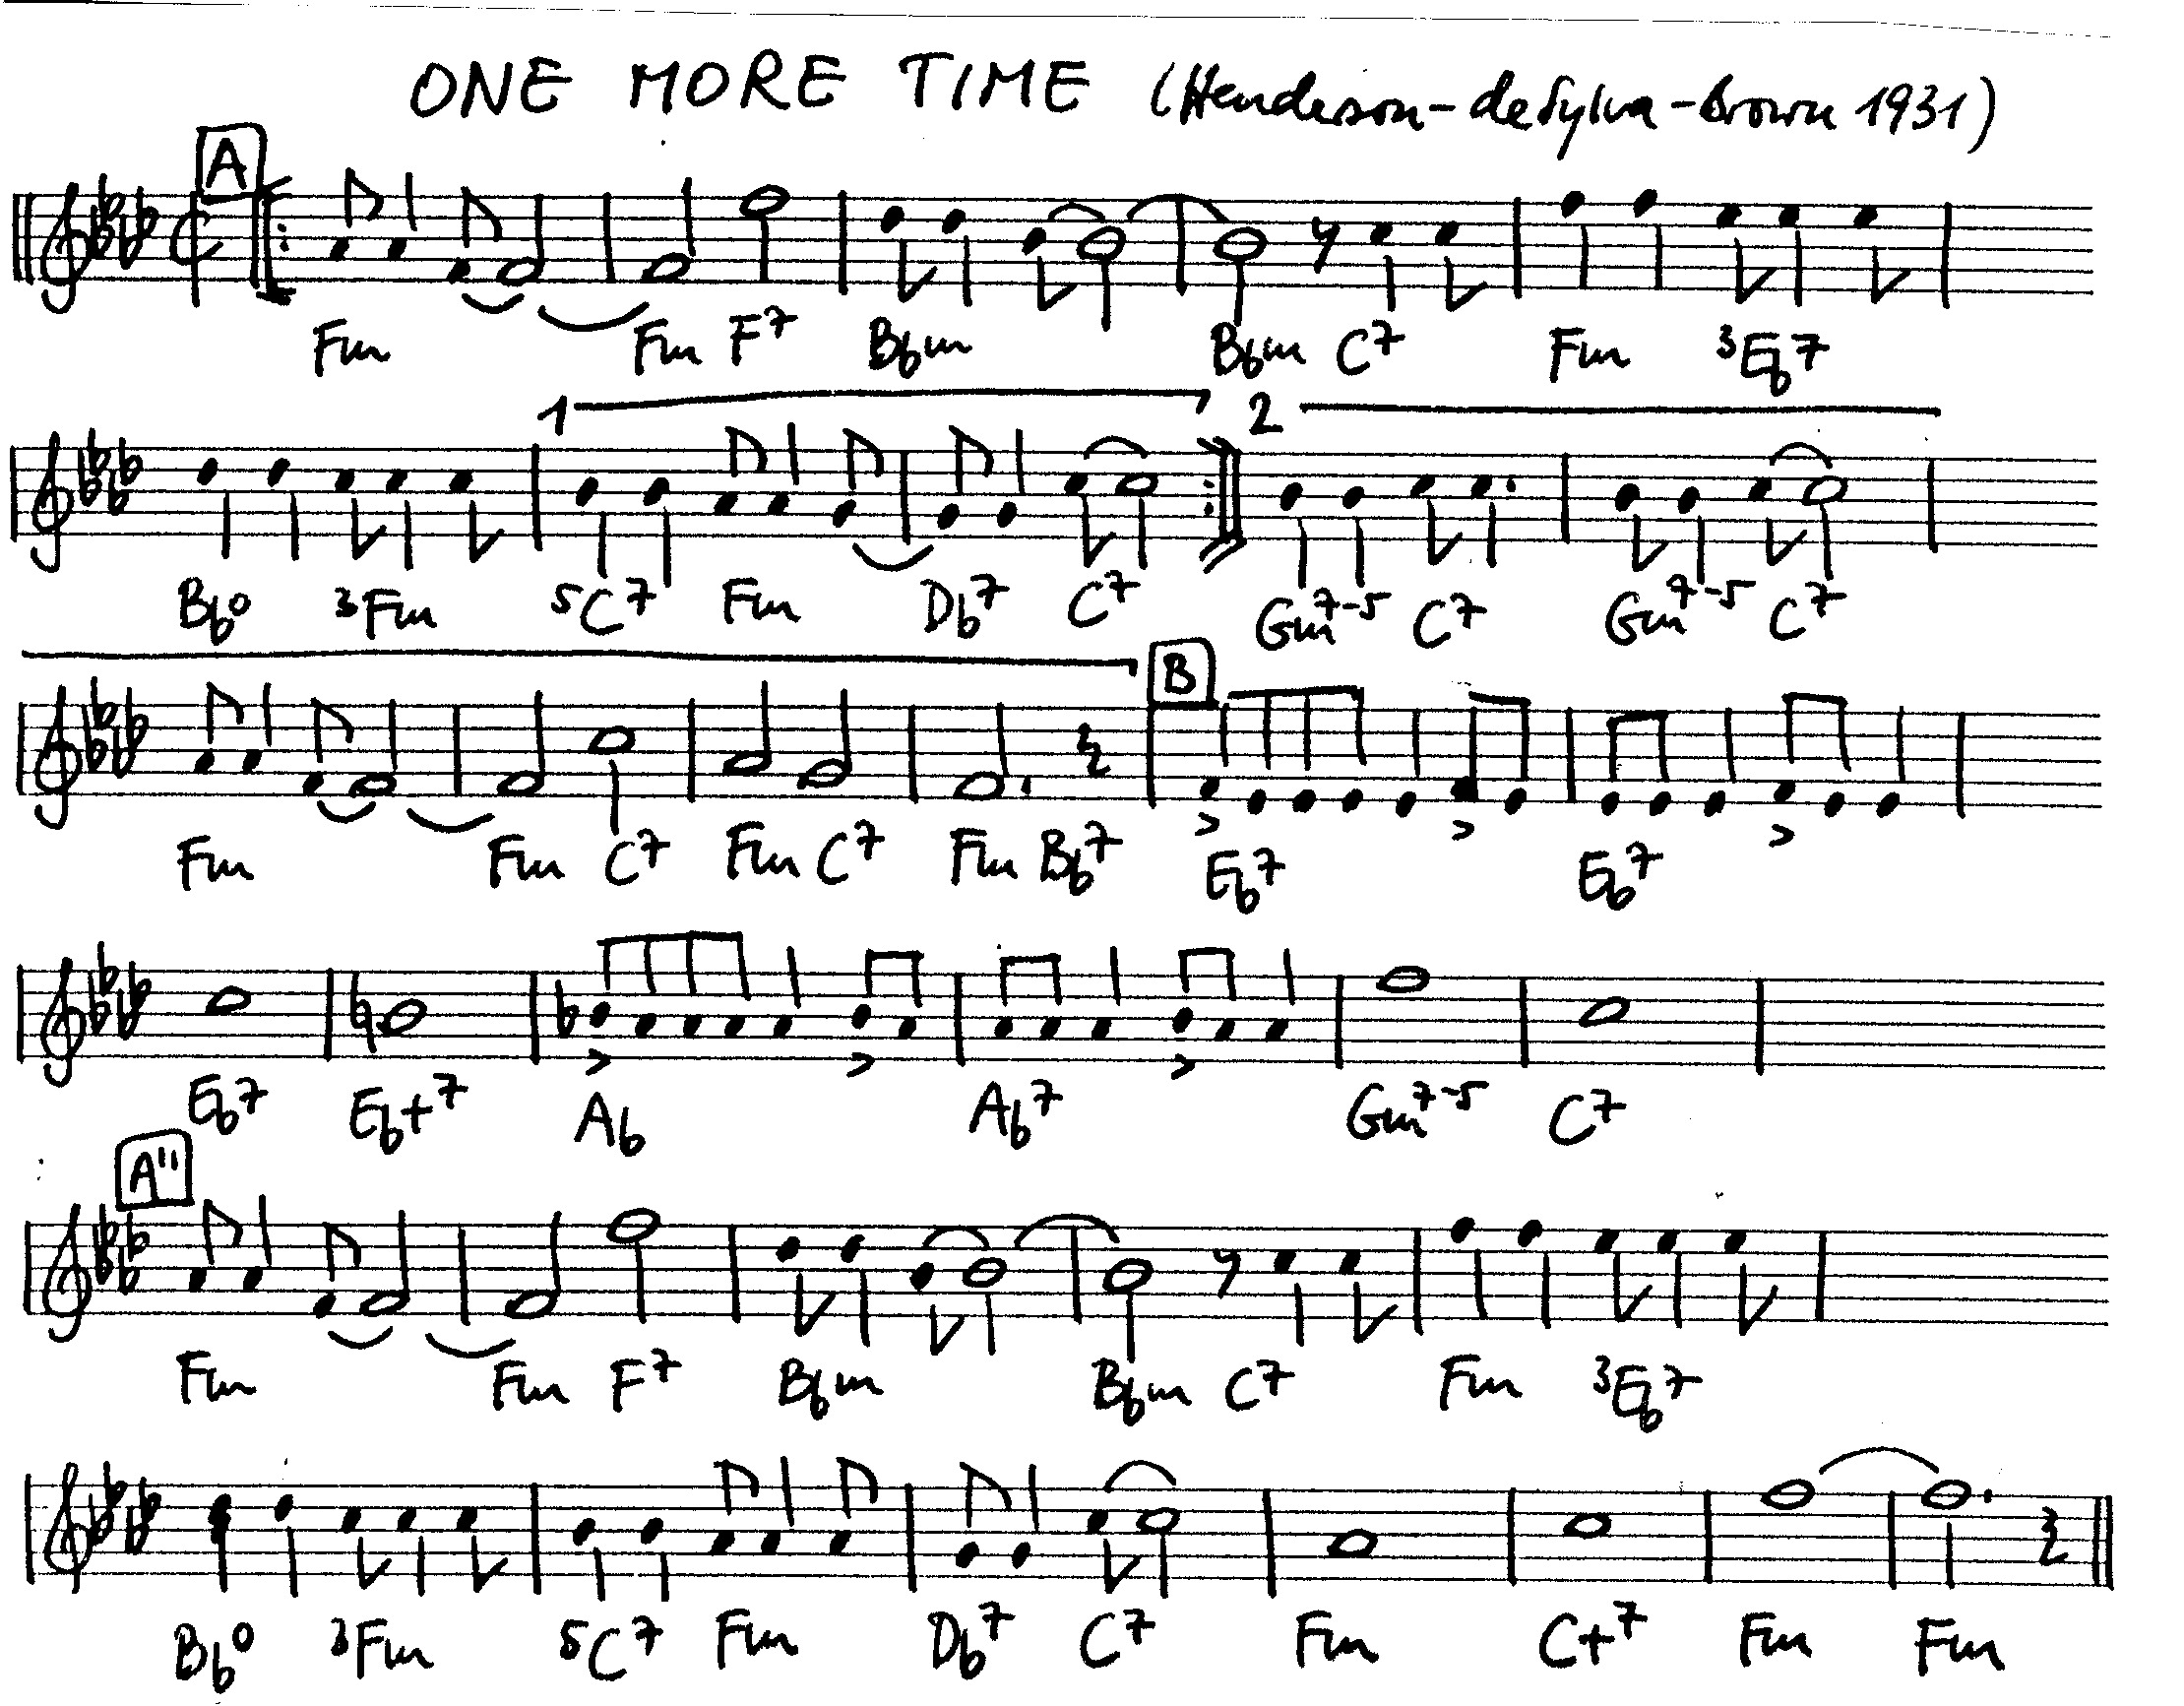 ONE MORE TIME (Henderson-deSylva-Brown 1931)
A
Fm Fm F7 Bbm Bbm C7 Fm 3Eb7
1 2
Bbo 3Fm 5C7 Fm Db7 C7 Gm7-5 C7 Gm7-5 C7
B
Fm Fm C7 Fm C7 Fm Bb7 Eb7 Eb7
Eb7 Eb+7 Ab Ab7 Gm7-5 C7
A"
Fm Fm F7 Bbm Bbm C7 Fm 3Eb7
Bbo 3Fm 5C7 Fm Db7 C7 Fm C+7 Fm Fm